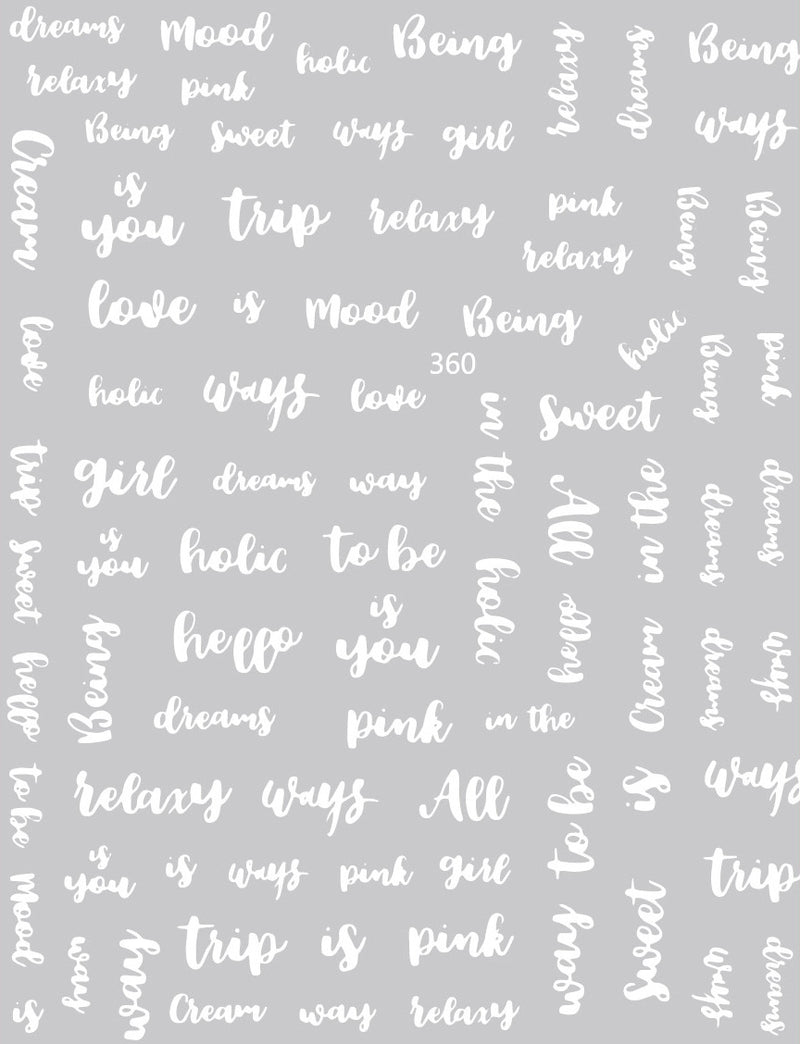 dreams Mood holic Being relaxy dreams Being
relaxy pink
Being sweet ways girl ways
Cream
is
you trip relaxy pink Being Being
relaxy
love is Mood Being holic
love
360
holic ways love in the sweet Being pink
trip girl dreams way All in the dreams dreams
sweet is
you holic to be holic
hello Being hello is
you hello Cream dreams ways
dreams pink in the
to be relaxy ways All way to be is ways
is
you is ways pink girl trip
Mood trip is pink sweet
way way ways dreams
is Cream way relaxy